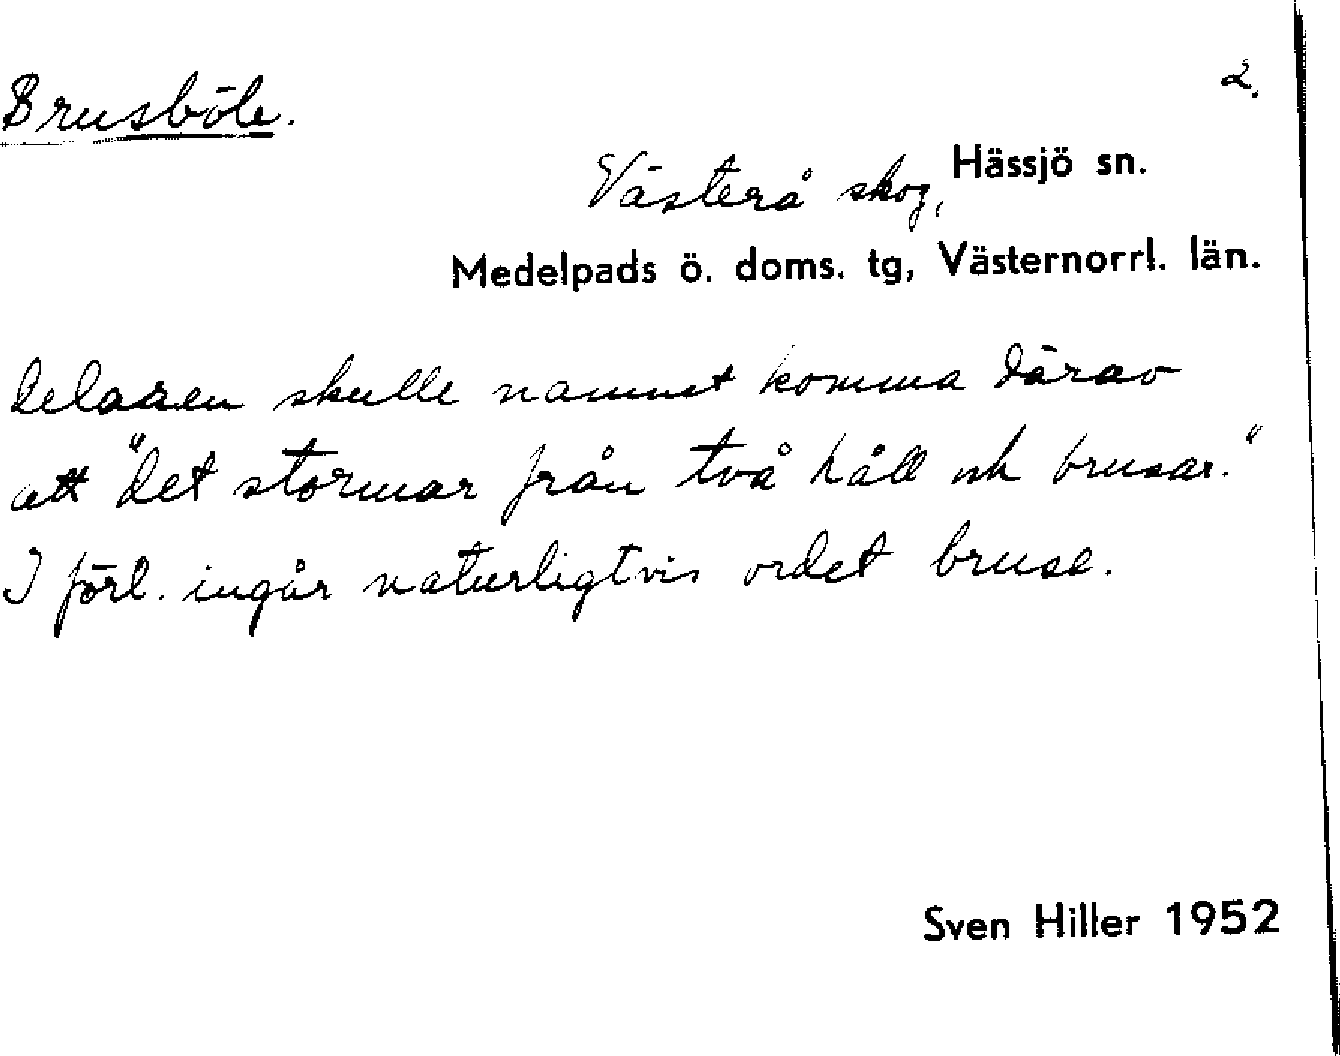 Brusböle.
2.
Västerå skog, Hässjö sn.
Medelpads ö. doms. tg, Västernorrl. län.
skulle namnet komma därav
att "det stormar från två håll och brusar."
I förl. ingår naturligtvis ordet bruse.
Sven Hiller 1952